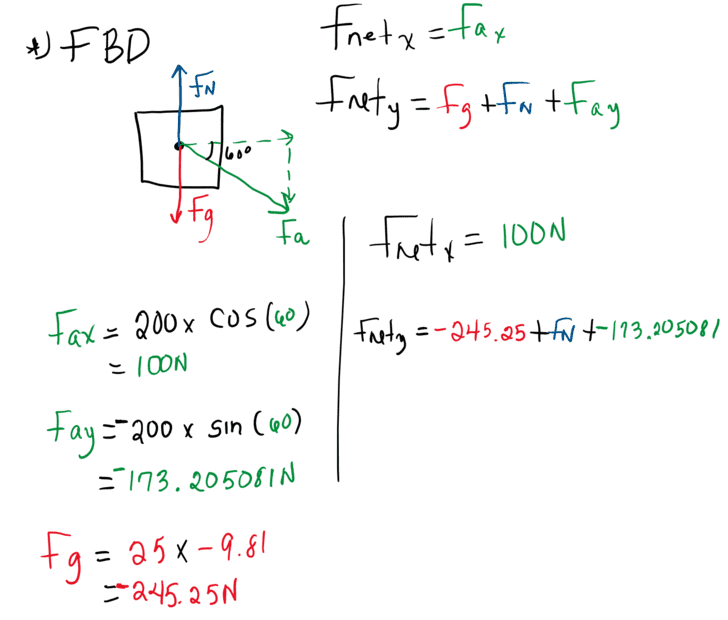 *) FBD
Fnet x = Fax
Fnet y = Fg + FN + Fay
FN
60°
Fg
Fa
Fnet x = 100N
Fnet y = -245.25 + FN + -173.205081
Fax = 200 x cos (60)
= 100N
Fay = -200 x sin (60)
= -173.205081N
Fg = 25 x -9.81
= -245.25N